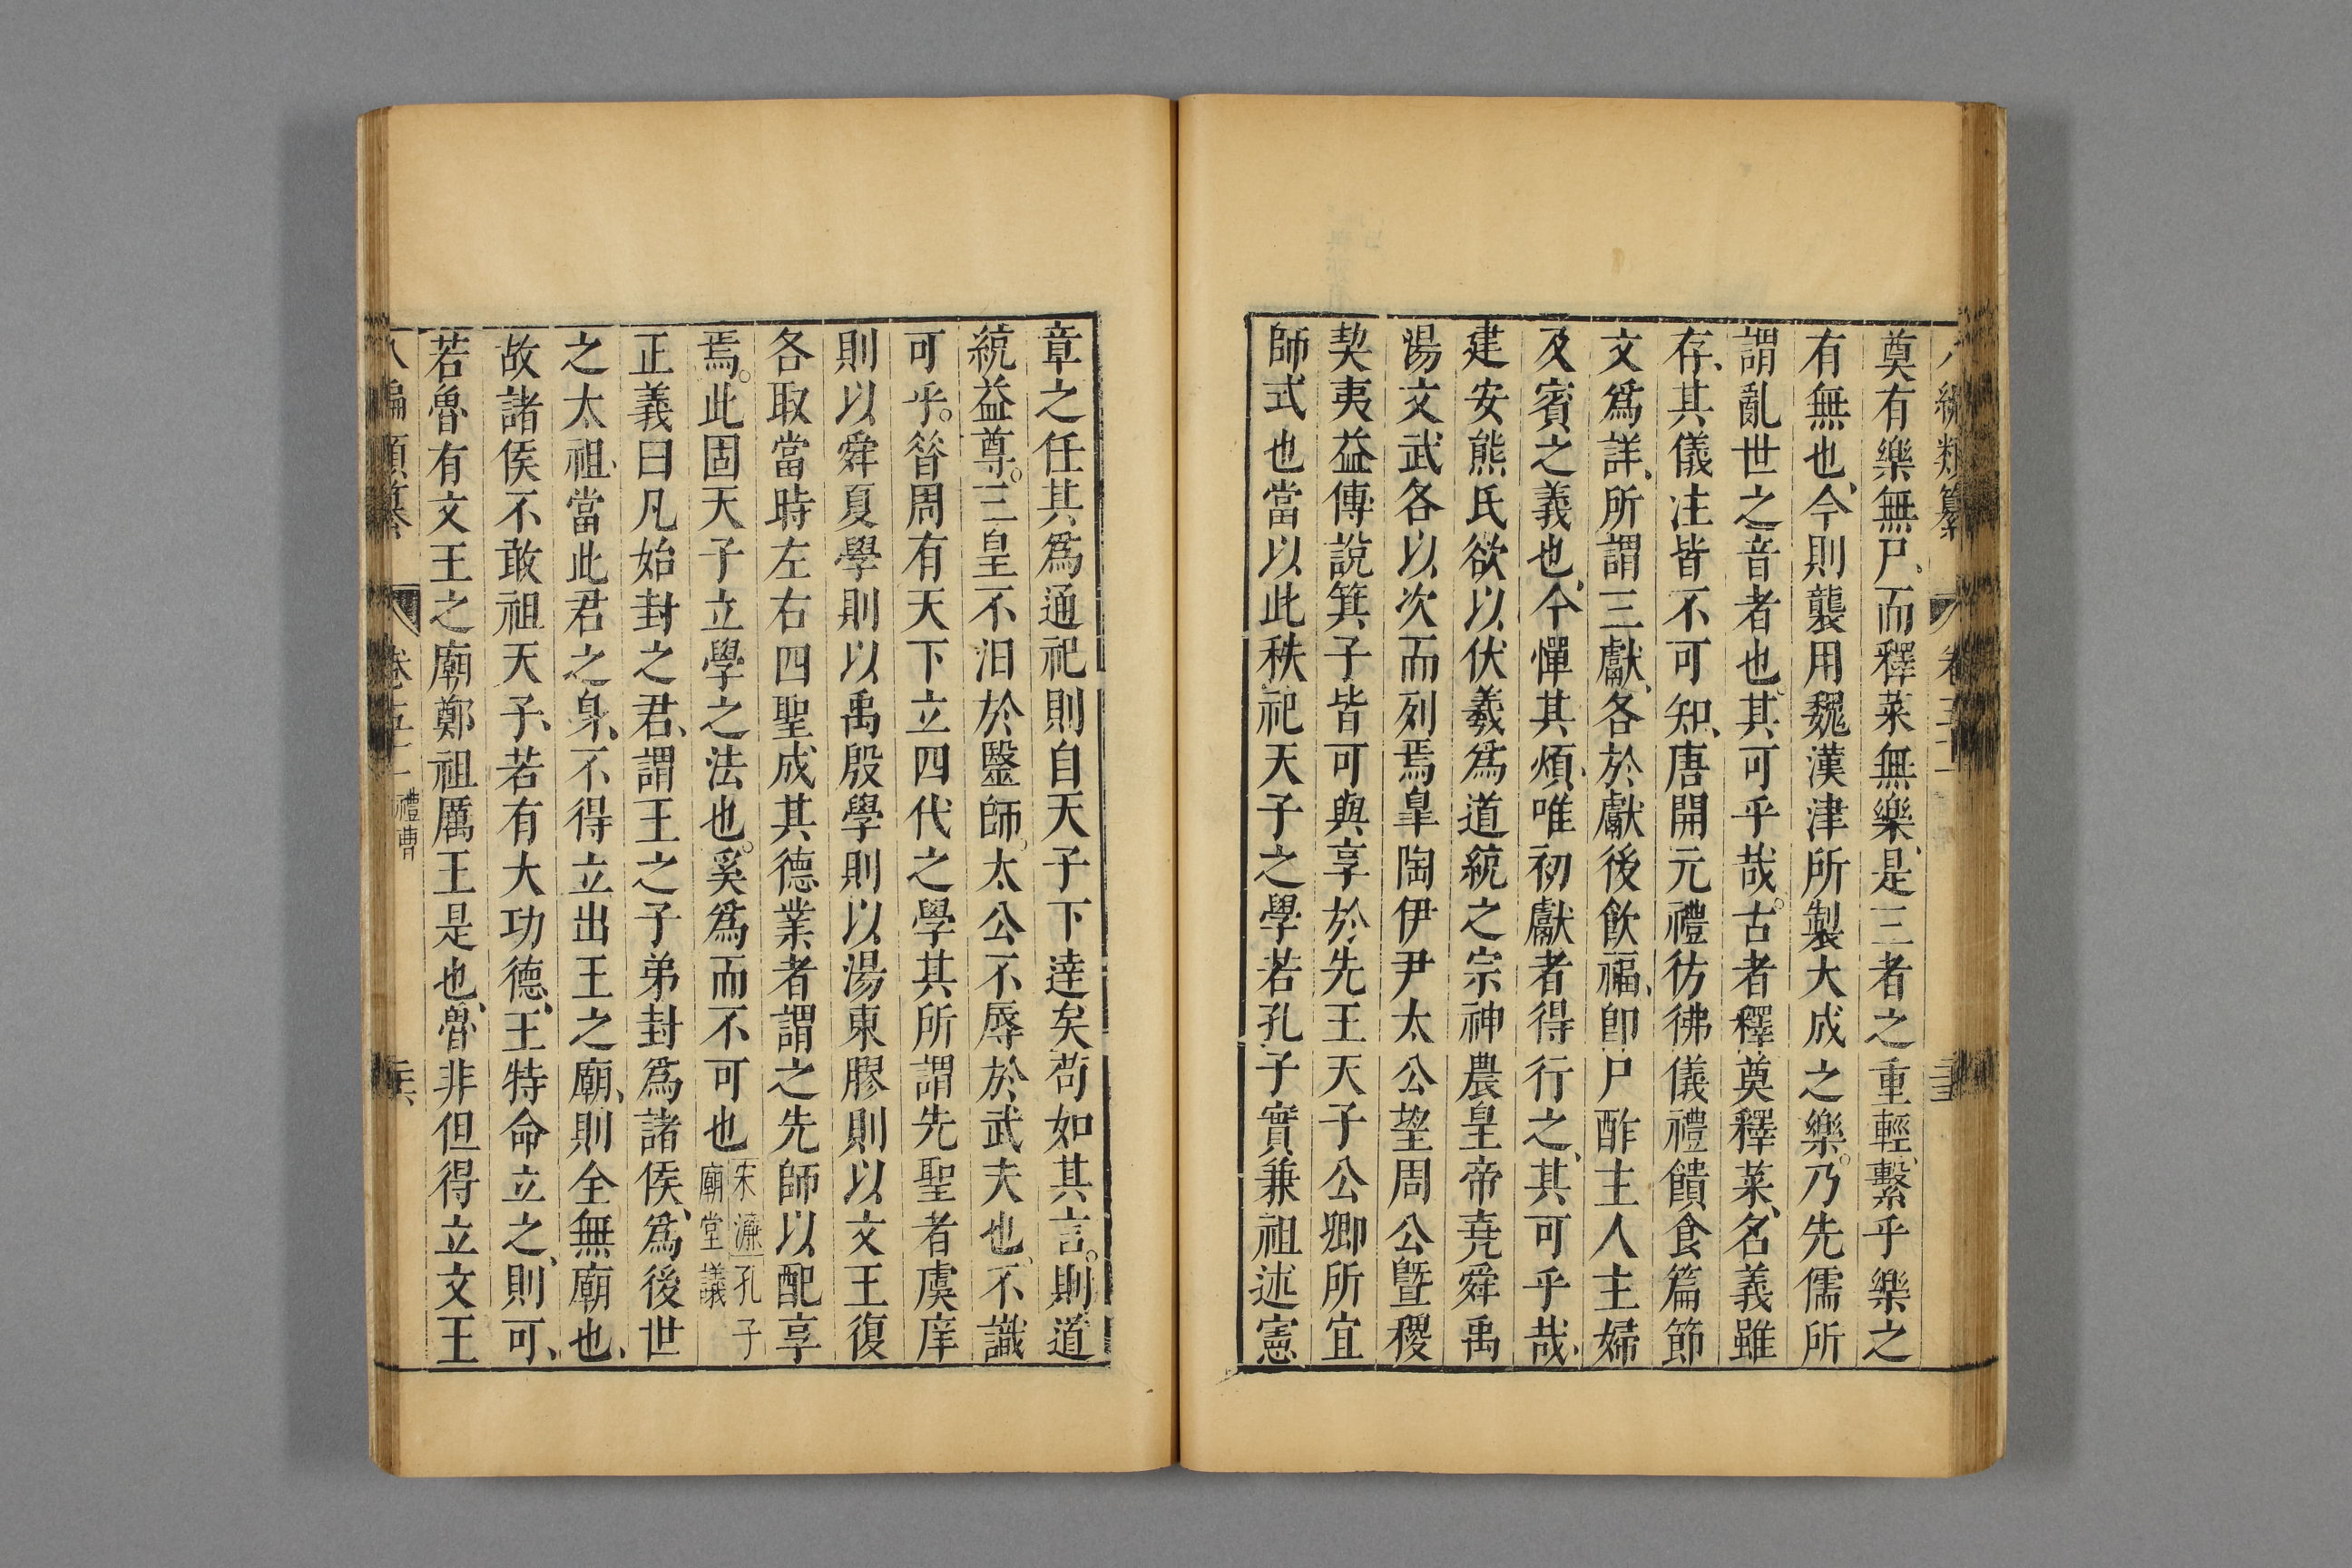 編類纂
奠有樂無尸而釋菜無樂是三者之重輕繫乎樂之
有無也今則襲用魏漢津所製大成之樂乃先儒所
謂亂世之音者也其可乎哉古者釋奠釋菜名義雖
存其儀注皆不可知唐開元禮彷彿儀禮饋食篇節
文爲詳所謂三獻各於獻後飲福卽尸酢主人主婦
及賓之義也今憚其煩唯初獻者得行之其可乎哉
建安熊氏欲以伏羲爲道統之宗神農皇帝堯舜禹
湯文武各以次而列焉臯陶伊尹太公望周公曁稷
契夷益傳說箕子皆可與享於先王天子公卿所宜
師式也當以此秩祀天子之學若孔子實兼祖述憲
章之任其爲通祀則自天子下達矣苟如其言則道
統益尊三皇不汨於毉師太公不辱於武夫也不識
可乎昝周有天下立四代之學其所謂先聖者虞庠
則以舜夏學則以禹殷學則以湯東膠則以文王復
各取當時左右四聖成其德業者謂之先師以配享
焉此固天子立學之法也奚爲而不可也
宋濂孔子
廟堂議
正義曰凡始封之君謂王之子弟封爲諸侯爲後世
之太祖當此君之身不得立出王之廟則全無廟也
故諸侯不敢祖天子若有大功德王特命立之則可
若魯有文王之廟鄭祖厲王是也魯非但得立文王
八編類纂 卷五十一 禮曹